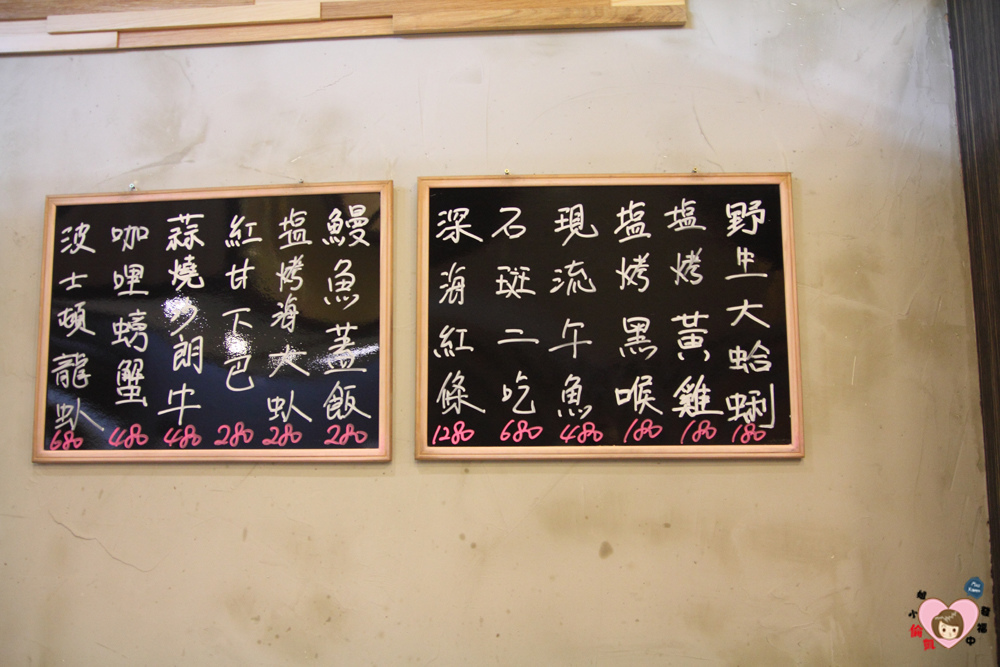 野生大蛤蜊
180
塩烤黃雞
180
塩烤黑喉
180
現流午魚
480
石斑二吃
680
深海紅條
1280
鰻魚蓋飯
280
塩烤海大虾
280
紅甘下巴
280
蒜燒沙朗牛
480
咖哩螃蟹
480
波士頓龍虾
680